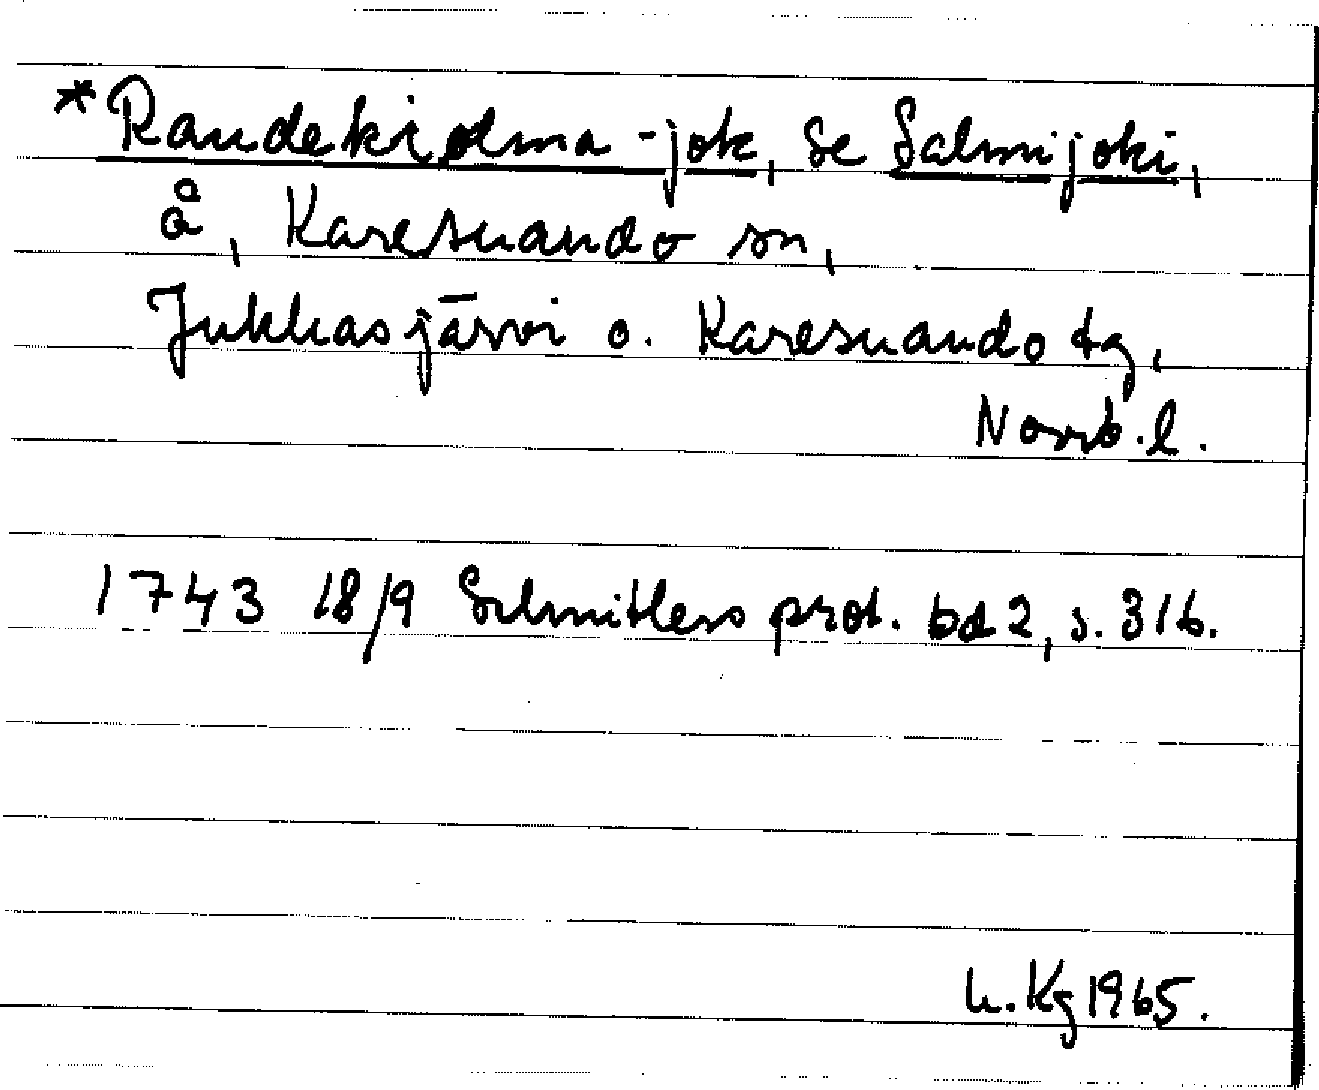 *Raudekiedma-jok, se Salmijoki,
å, Karesuando sn,
Jukkasjärvi o. Karesuando tg,
Norrb. l.
1743 18/9 Schnitlers prot. bd 2, s. 316.
h. Kg 1965.